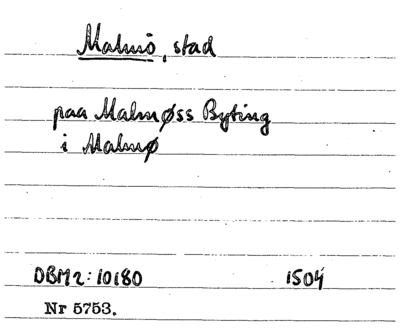 Malmö, stad
paa Malmøss Byting
i Malmø
DBM2:10180 1504
Nr 5753.